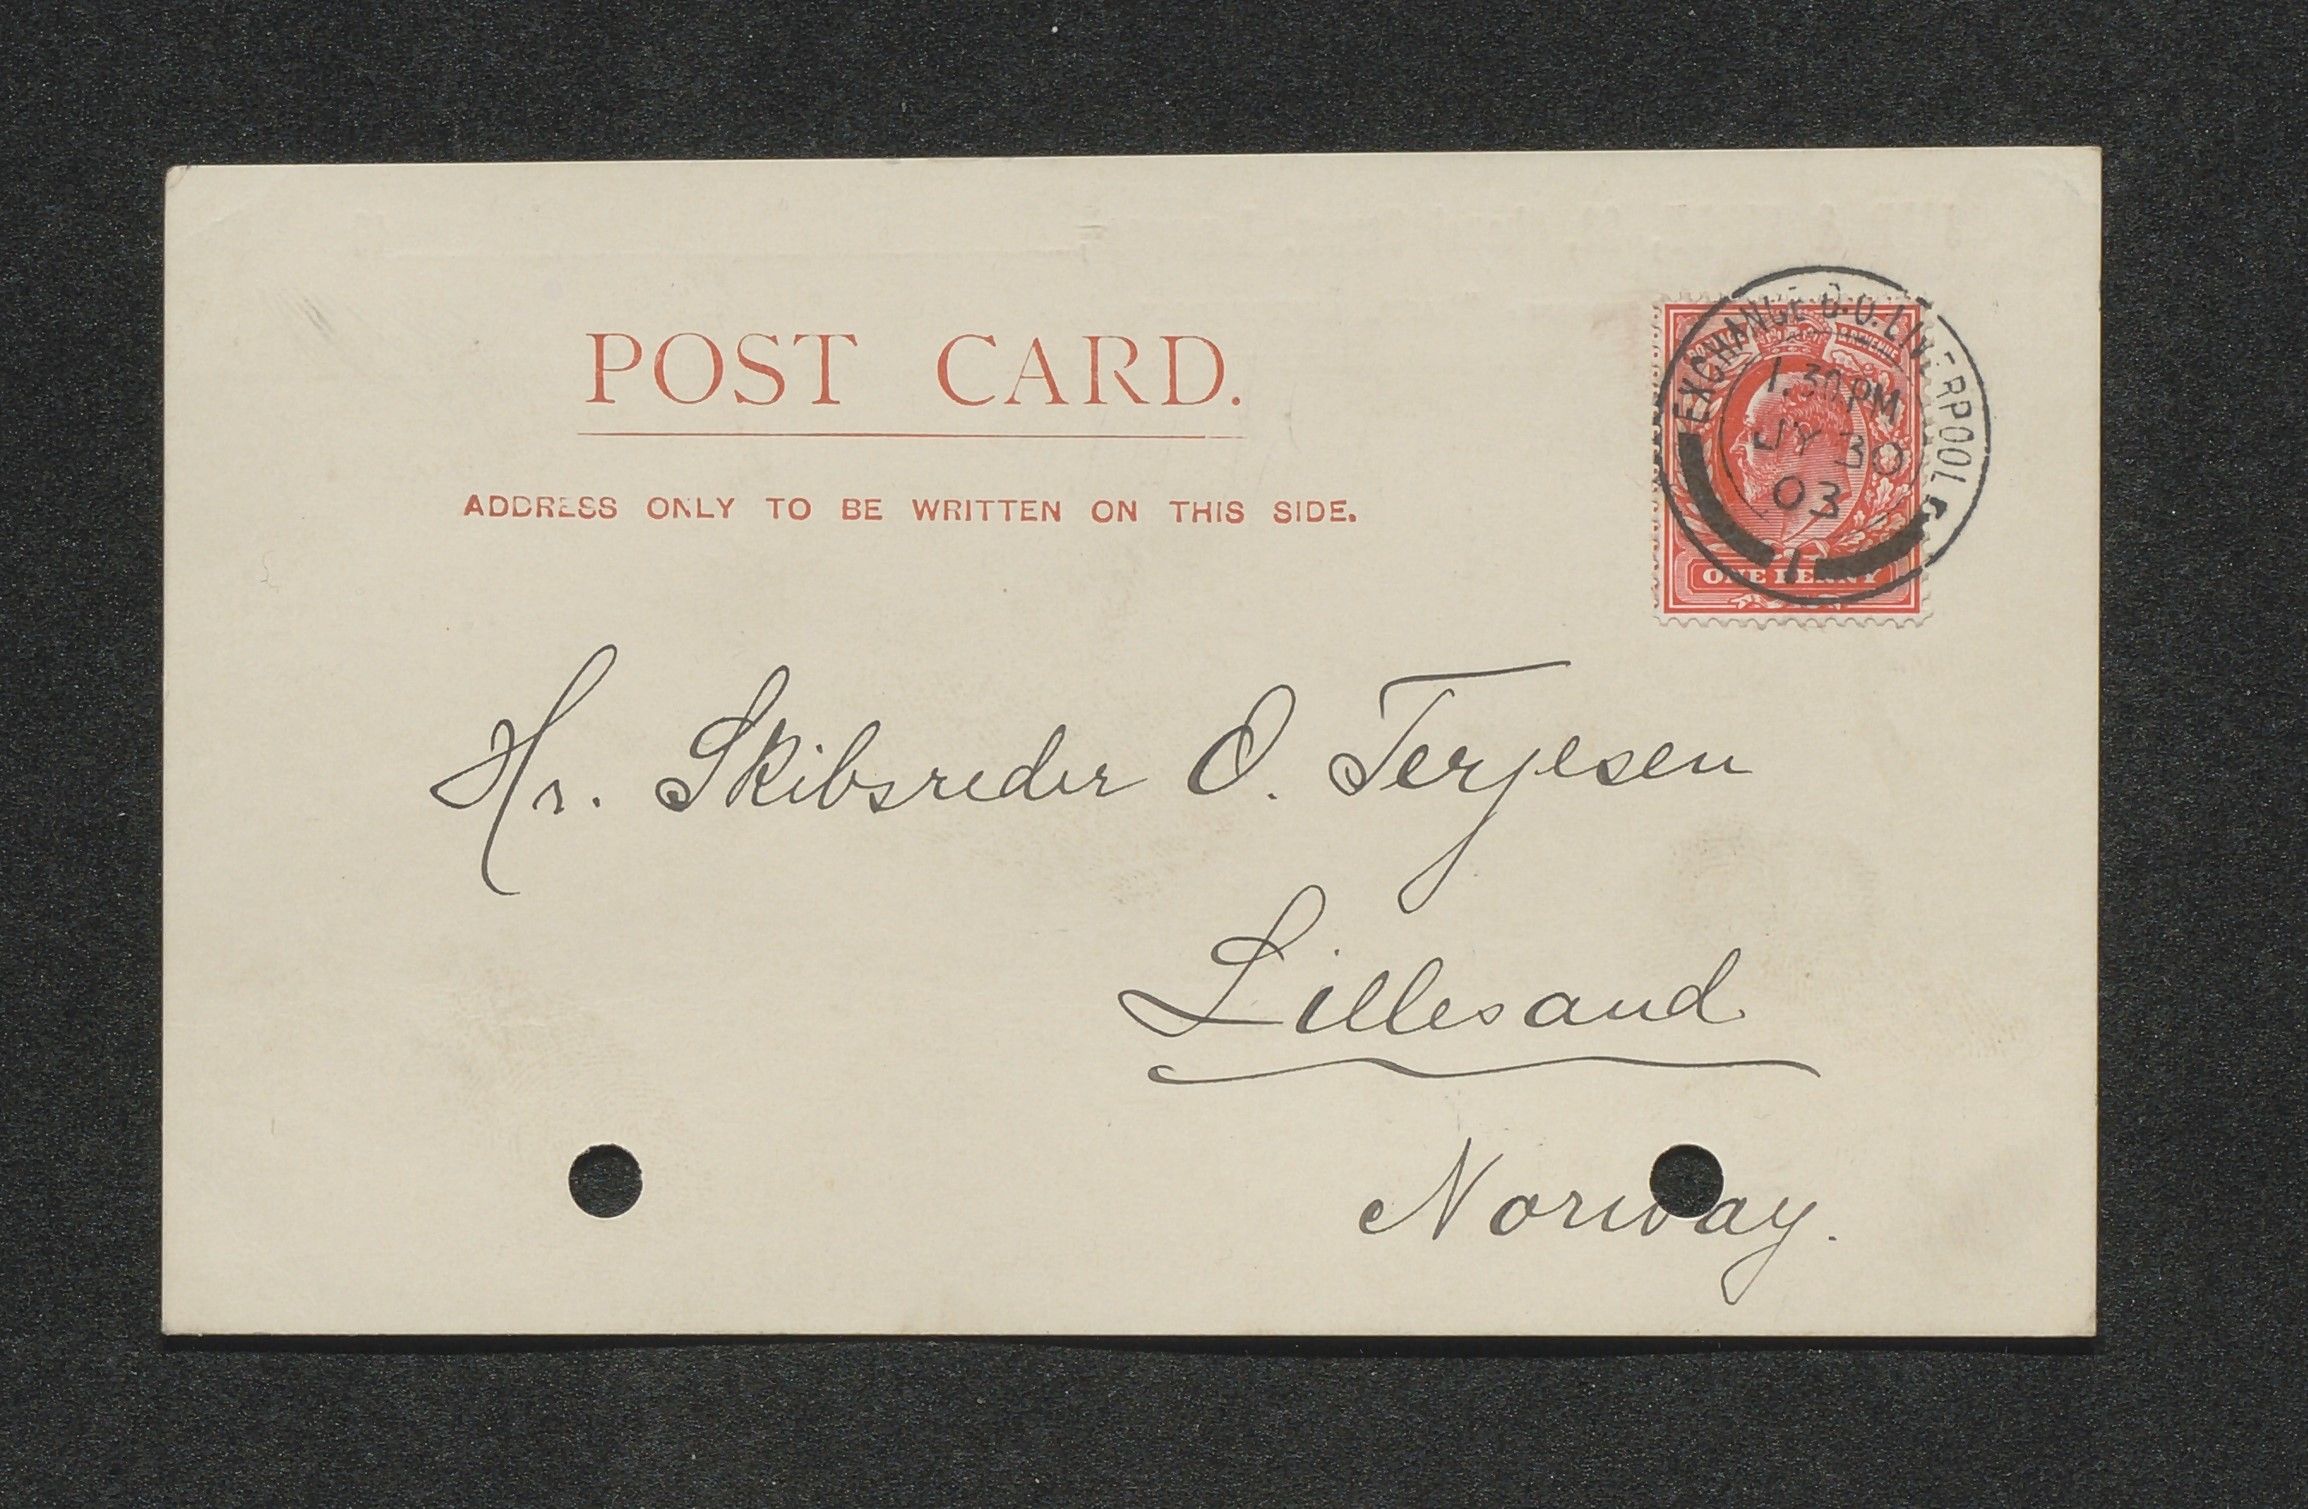 POST CARD.
ADDRESS ONLY TO BE WRITTEN ON THIS SIDE.
EXCHANGE B.O. LIVERPOOL
1.30 PM
JY 30
03
1
ONE PENNY
Hr. Skibsreder O. Terjesen
Lillesand
Norway.